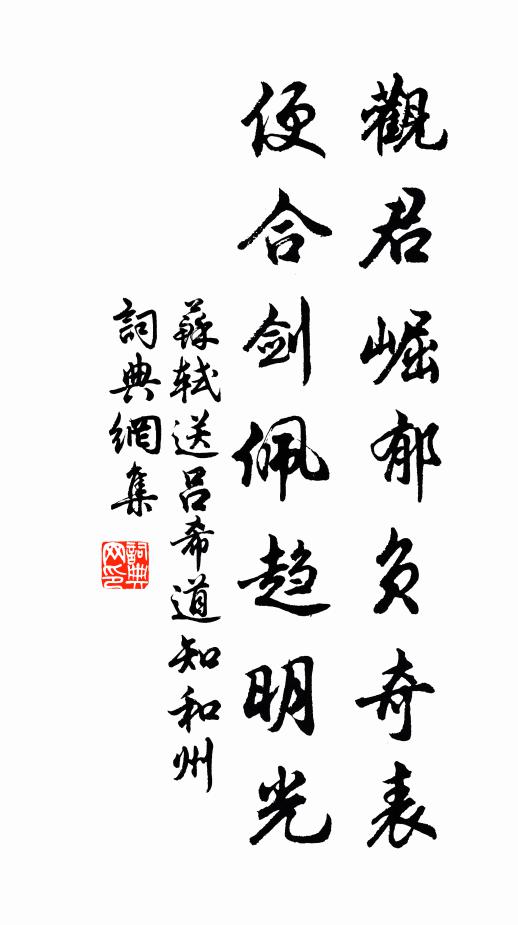 觀君崛郁負奇表
便合劍佩趨明光
蘇軾送呂希道知和州
詞典網集
詞典网印